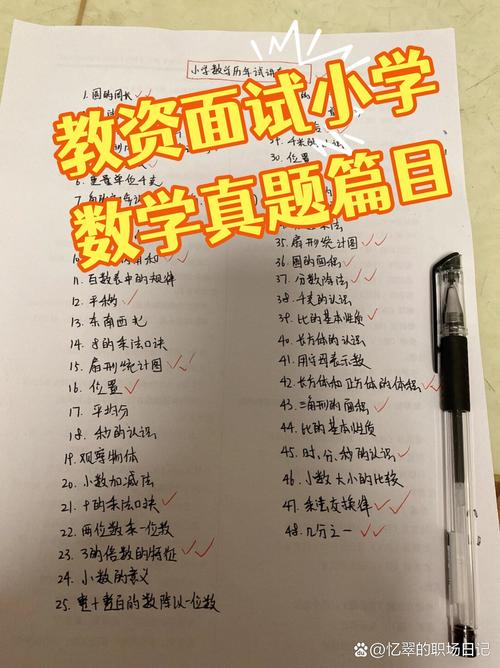 小学数学历年试讲
教资面试小学
数学真题篇目
1.圆的周长
6.重量单位千克
11.百数表中的规律
12.平移
13.东南西北
14.8的乘法口诀
15.扇形统计图
16.位置
17.平均分
18.秒的认识
19.观察物体
20.小数加减法
21.7的乘法口诀
22.两位数乘一位数
23.3的倍数的特征
24.小数的意义
25.整十整百的数除以一位数
30.位置
35.扇形统计图
36.圆的面积
37.分数除法
38.千克的认识
39.比的基本性质
40.长方体的认识
41.用字母表示数
42.长方体和正方体的体积
43.三角形的面积
44.比的基本性质
45.时、分、秒的认识
46.小数大小的比较
47.乘法交换律
48.几分之一
忆翠的职场日记